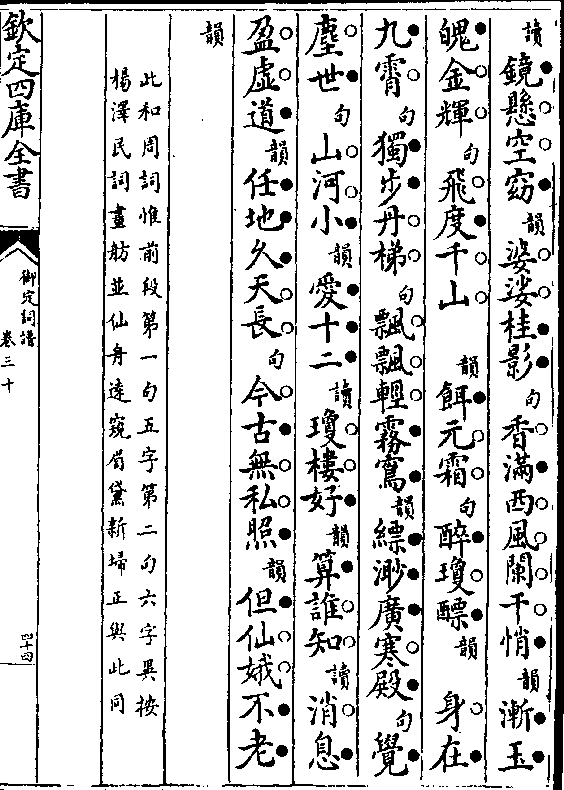 讀鏡懸空窈韻婆娑桂影句香滿西風闌干悄韻漸玉
魄金輝句飛度千山韻餌元霜句醉瓊醥韻身在
九霄句獨步丹梯句飄飄輕霧鶱韻縹渺廣寒殿句覺
塵世句山河小韻愛十二讀瓊樓好韻算誰知讀消息
盈虛道韻任地久天長句今古無私照韻但仙娥不老
韻
此和周詞惟前段第一句五字第二句六字異按
楊澤民詞畫舫並仙舟遠窺眉黛新埽正與此同
欽定四庫全書
御定詞譜
卷三十
四十四